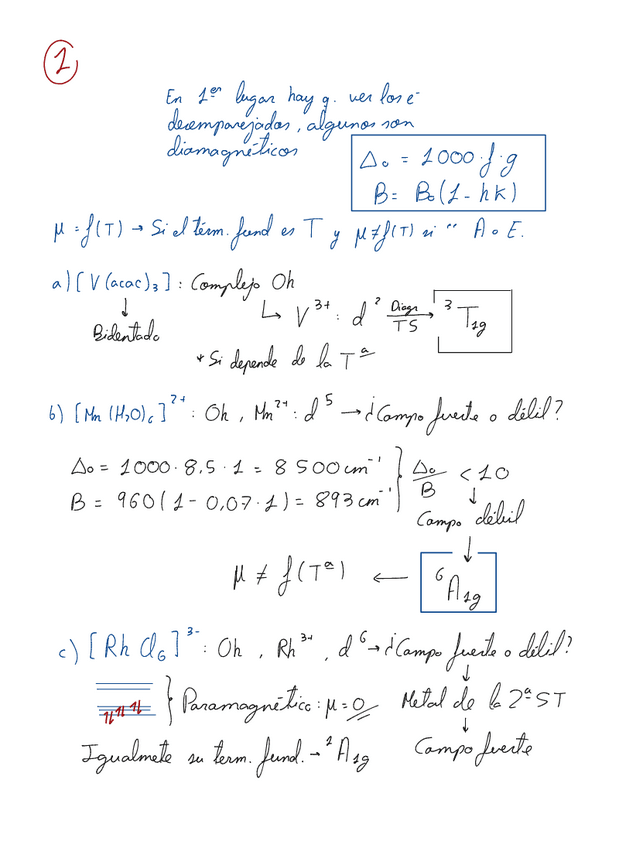 1
En 1er lugar hay q. ver los e-
desemparejados, algunos son
diamagnéticos
Δo = 1000·f·g
B = Bo(1-hk)
μ = f(T) → Si el térm. fund es T y μ≠f(T) si " A o E.
a) [V(acac)3] : Complejo Oh
↓
Bidentado
↳ V3+ : d2 Diagr TS → 3T1g
* Si depende de la Tª
b) [Mn(H2O)6]2+ : Oh, Mn2+ : d5 → ¿Campo fuerte o débil?
Δo = 1000·8,5·1 = 8500 cm-1
B = 960(1-0,07·1) = 893 cm-1
} Δo/B < 10
↓
Campo débil
↓
μ ≠ f(Tª) ← 6A1g
c) [RhCl6]3- : Oh, Rh3+, d6 → ¿Campo fuerte o débil?
↓
} Paramagnético : μ=0 Metal de la 2ª ST
↓
Igualmete su term. fund. → 1A1g Campo fuerte